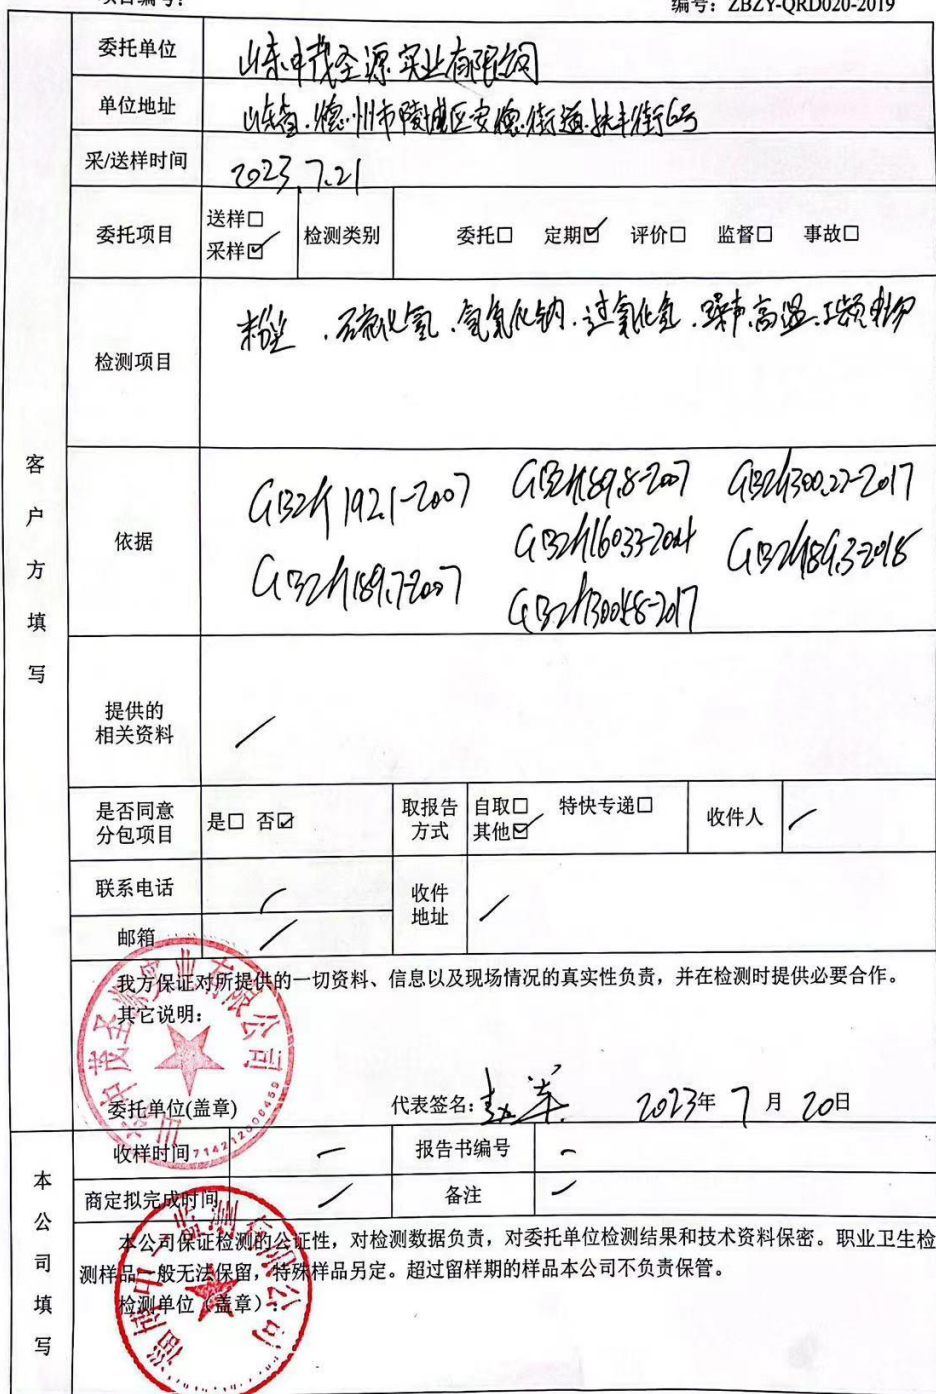 项目编号：
编号：ZBZY-QRD020-2019
委托单位 山东中茂圣源实业有限公司
单位地址 山东省.德州市陵城区安德街道扶丰街6号
采/送样时间 2023.7.21
委托项目 送样□ 采样☑ 检测类别 委托□ 定期☑ 评价□ 监督□ 事故□
检测项目 粉尘.硫化氢.氢氧化钠.过氧化氢.噪声.高温.工频电场
客户方填写
依据
GBZ/T 192.1-2007 GBZ/T189.8-2007 GBZ/T300.22-2017
GBZ/T189.7-2007 GBZ/T160.33-2004 GBZ/T189.3-2018
GBZ/T300.48-2017
提供的
相关资料 /
是否同意
分包项目 是□ 否☑ 取报告
方式 自取□ 特快专递□
其他☑ 收件人 /
联系电话 / 收件
地址 /
邮箱 /
我方保证对所提供的一切资料、信息以及现场情况的真实性负责，并在检测时提供必要合作。
其它说明：
委托单位(盖章) 代表签名： 2023年 7月 20日
山东中茂圣源实业有限公司
收样时间 / 报告书编号 /
商定拟完成时间 / 备注 /
本公司填写
本公司保证检测的公证性，对检测数据负责，对委托单位检测结果和技术资料保密。职业卫生检
测样品一般无法保留，特殊样品另定。超过留样期的样品本公司不负责保管。
检测单位（盖章）：